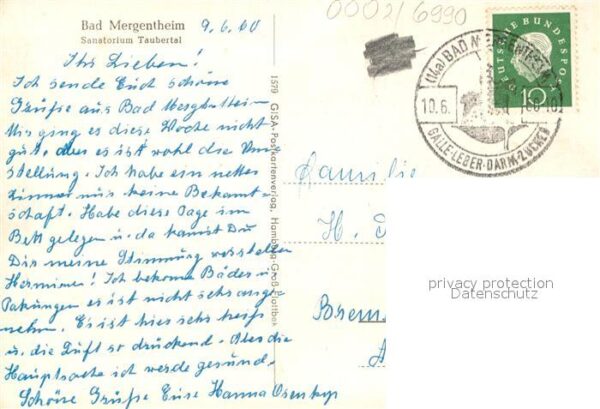 Bad Mergentheim 9.6.60
Sanatorium Taubertal
0002/6990
Ihr Lieben!
Ich sende Euch schöne
Grüße aus Bad Mergentheim
Mir ging es diese Woche nicht
gut, aber es ist wohl die Um-
stellung. Ich habe ein nettes
Zimmer nur keine Bekannt-
schaft. Habe diese Tage im
Bett gelegen u. da kannst Du
Dir meine Stimmung vorstellen
Hermine! Ich bekomme Bäder u.
Pakungen es ist nicht sehr ange-
nehm. Es ist hier sehr heiß
u. die Luft so drückend. Aber die
Hauptsache ich werde gesund.
Schöne Grüße Eure Hanna
1579 GISA-Postkartenverlag, Hamburg-Groß-Flottbek
DEUTSCHE BUNDESPOST
10
(14a) BAD MERGENTHEIM
10.6.
GALLE·LEBER·DARM·ZUCKER
Familie
H.
Brem
privacy protection
Datenschutz